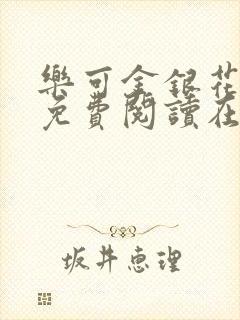 樂可金銀花
免費閱讀在
坂井恵理